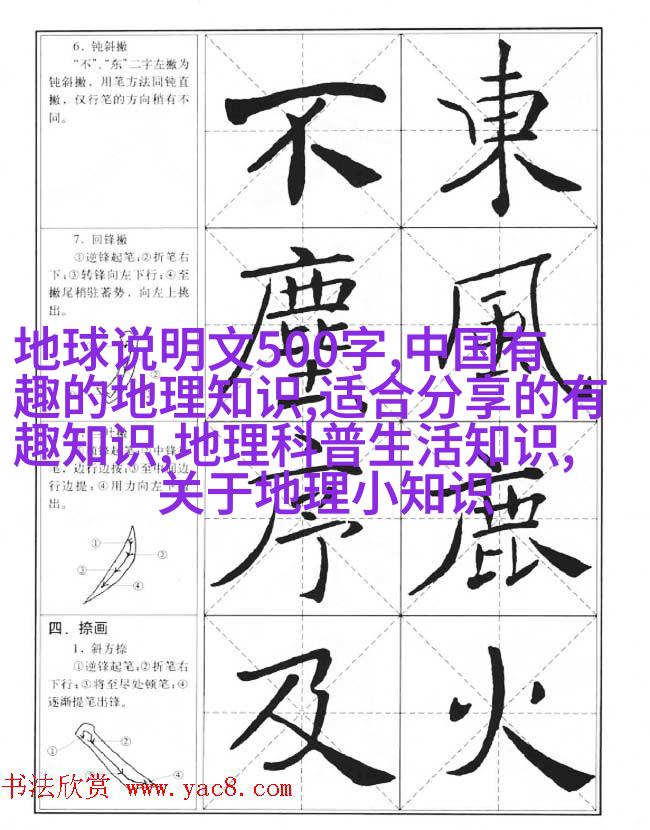 6. 钝斜撇
“不”、“东”二字左撇为
钝斜撇，用笔方法同钝直
撇，仅行笔的方向稍有不
同。
不 東
7. 回锋撇
①逆锋起笔；②折笔右
下；③转锋向左下行；④至
撇尾稍驻蓄势，向左上挑
出。
塵 風
地球说明文500字,中国有
趣的地理知识,适合分享的有
趣知识,地理科普生活知识,
关于地理小知识
②
行边提；④用力向左下
出。
① ② ③ ④
序 鹿
四、捺画
1. 斜方捺
①逆锋起笔；②折笔右
下行；③将至尽处顿笔；④
逐渐提笔出锋。
① ② ③ ④
及 火
书法欣赏 www.yac8.com